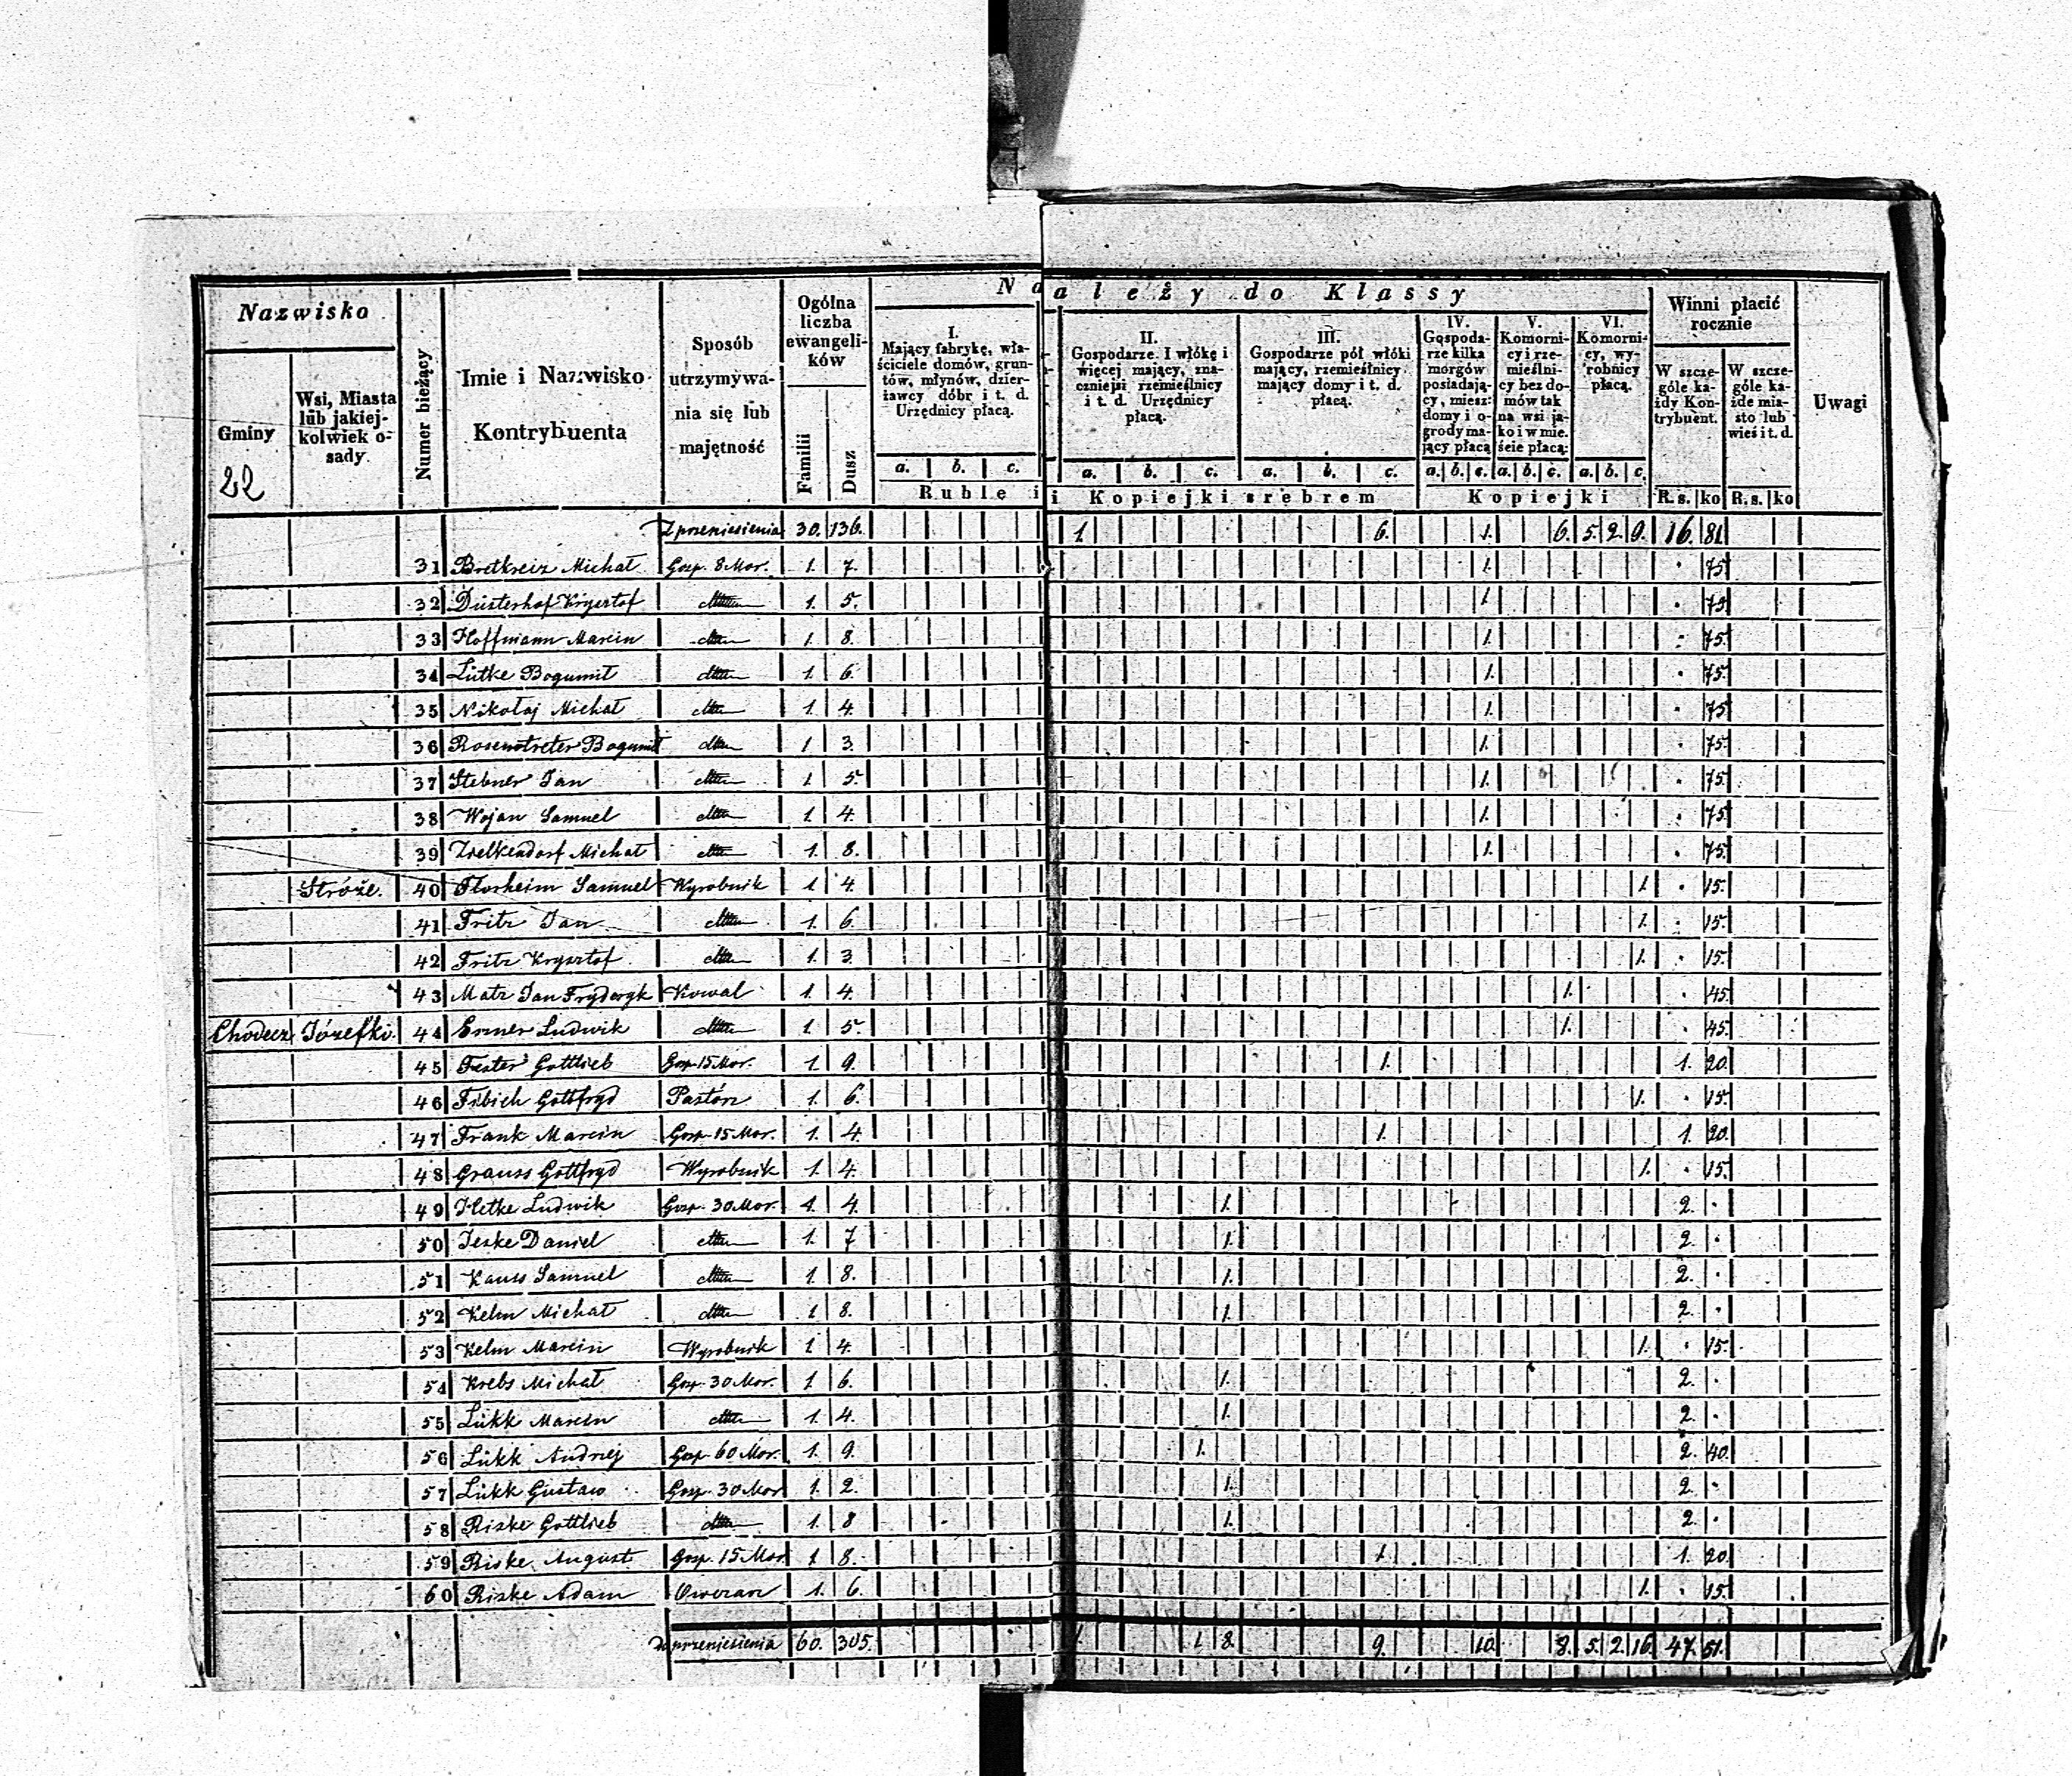 Nazwisko
Gminy
22
Wsi, Miasta lub jakiej- kolwiek o- sady.
Numer bieżący
Imie i Nazwisko Kontrybuenta
Sposób utrzymywa- nia się lub majętność
Ogólna liczba ewangeli- ków
Familii Dusz
Należy do Klassy
I. Mający fabrykę, wła- ściciele domów, grun- tów, młynów, dzier- żawcy dóbr i t. d. Urzędnicy płacą.
II. Gospodarze. I włókę i więcej mający, zna- czniejsi rzemieślnicy i t. d. Urzędnicy płacą.
III. Gospodarze pół włóki mający, rzemieślnicy mający domy i t. d. płacą.
IV. Gospoda- rze kilka morgów posiadają- cy, miesz: domy i o- grody ma- jący płacą
V. Komorni- cy i rze- mieślni- cy bez do- mów tak na wsi ja- ko i w mie- ście płacą:
VI. Komorni- cy, wy- robnicy płacą.
Winni płacić rocznie
W szcze- góle ka- żdy Kon- trybuent.
W szcze- góle ka- żde mia- sto lub wieś i t. d.
Uwagi
a. b. c. a. b. c. a. b. c. a. b. c. a. b. c. a. b. c.
Ruble i i Kopiejki srebrem Kopiejki R.s. ko R.s. ko
Z przeniesienia 30. 136. 1. 6. 1. 6. 5. 2. 9. 16. 81.
31 Bretkreiz Michał Gosp. 8 Mor. 1. 7. 1. . 75
32 Düsterhof Krysztof ditto 1. 5. 1. . 75.
33 Hoffmann Marcin ditto 1. 8. 1. . 75.
34 Lütke Bogumił ditto 1. 6. 1. . 75.
35 Nikołaj Michał ditto 1. 4. 1. . 75
36 Rosenstreter Bogumił ditto 1 3. 1. . 75.
37 Stebner Jan ditto 1. 5. 1. . 75.
38 Wojan Samuel ditto 1. 4. 1. . 75.
39 Zielkendorf Michał ditto 1. 8. 1. . 75.
Stróże. 40 Florheim Samuel Wyrobnik 1. 4. 1. . 15.
41 Fritz Jan ditto 1. 6. 1. . 15.
42 Fritz Krysztof ditto 1. 3. 1. . 15.
43 Matz Jan Fryderyk Kowal 1. 4. 1. . 45.
Chodecz Józefki. 44 Exner Ludwik ditto 1. 5. 1. . 45.
45 Fester Gottlieb Gosp. 15 Mor. 1. 9. 1. 1. 20.
46 Fibich Gottfryd Pastórz 1. 6. 1. . 15.
47 Frank Marcin Gosp. 15 Mor. 1. 4. 1. 1. 20.
48 Grauss Gottfryd Wyrobnik 1. 4. 1. . 15.
49 Hetke Ludwik Gosp. 30 Mor. 1. 4. 1. 2. .
50 Jeske Daniel ditto 1. 7 1. 2. .
51 Kauss Samuel ditto 1. 8. 1. 2. .
52 Kelm Michał ditto 1. 8. 1. 2. .
53 Kelm Marcin Wyrobnik 1 4. 1. . 15.
54 Krebs Michał Gosp. 30 Mor. 1 6. 1. 2. .
55 Lükk Marcin ditto 1. 4. 1. 2. .
56 Lükk Andrzej Gosp. 60 Mor. 1. 9. 1. 2. 40.
57 Lükk Gustaw Gosp. 30 Mor 1. 2. 1. 2. .
58 Riske Gottlieb ditto 1. 8 1. 2. .
59 Riske August Gosp. 15 Mor 1. 8. 1. 1. 20.
60 Riske Adam Owczarz 1. 6. 1. . 15.
do przeniesienia 60. 305. 1. 1. 8. 9. 10. 8. 5. 2. 16. 47. 51.